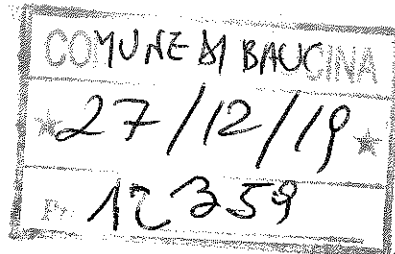 COMUNE DI BAUCINA
27/12/19
Pr. 12359